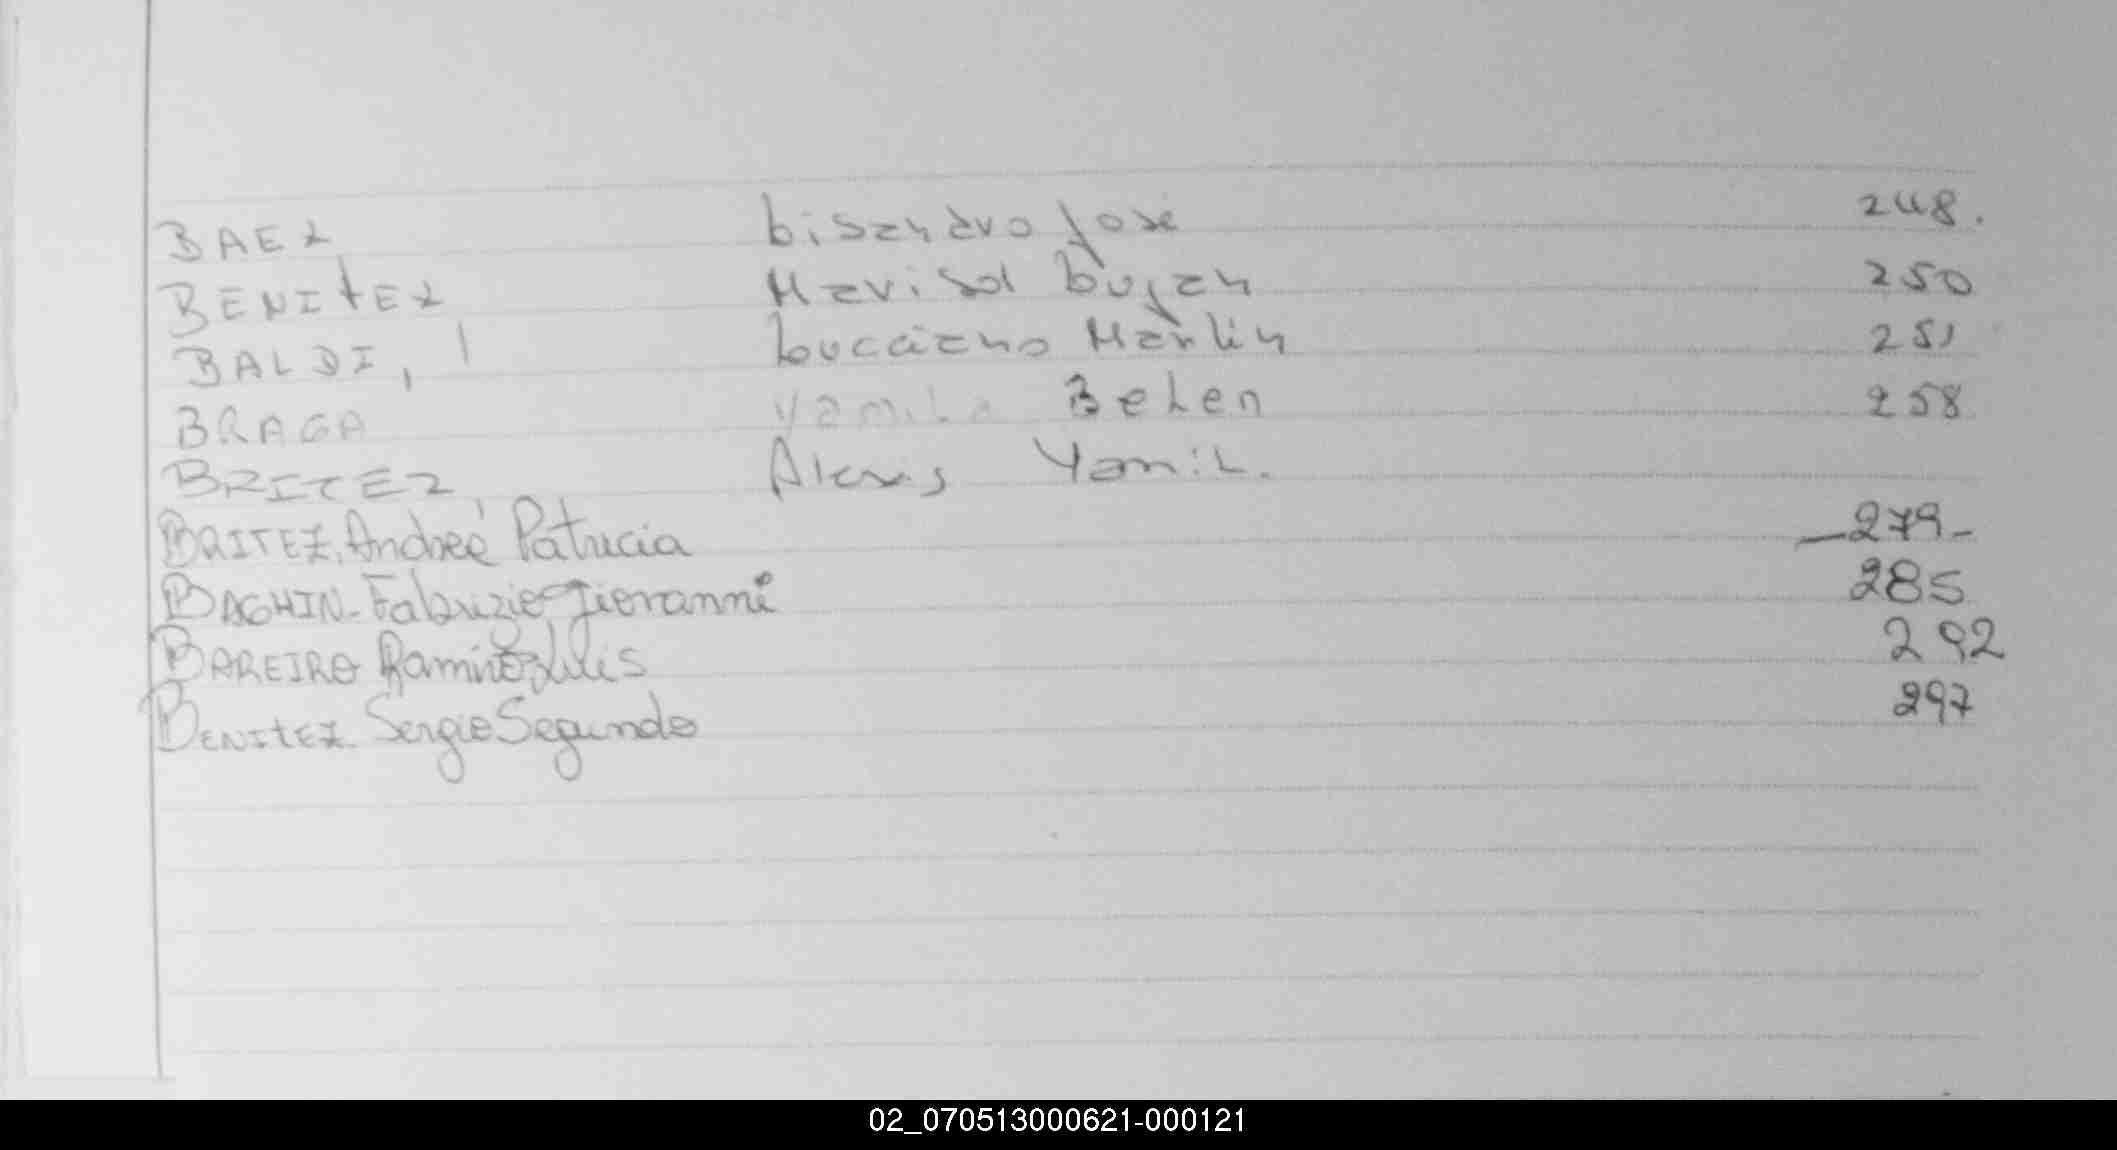 BAEZ Lisandro José 248.
BENITEZ Marisol Luján 250
BALDI, Lucciano Martín 251
BRAGA Yamila Belen 258
BRITEZ Alexis Yamil.
BRITEZ, Andreé Patricia -279-
BAGHIN- Fabrizio Giovanni 285
BAREIRO Ramiro Luis 292
BENITEZ Sergio Segundo 297
02_070513000621-000121